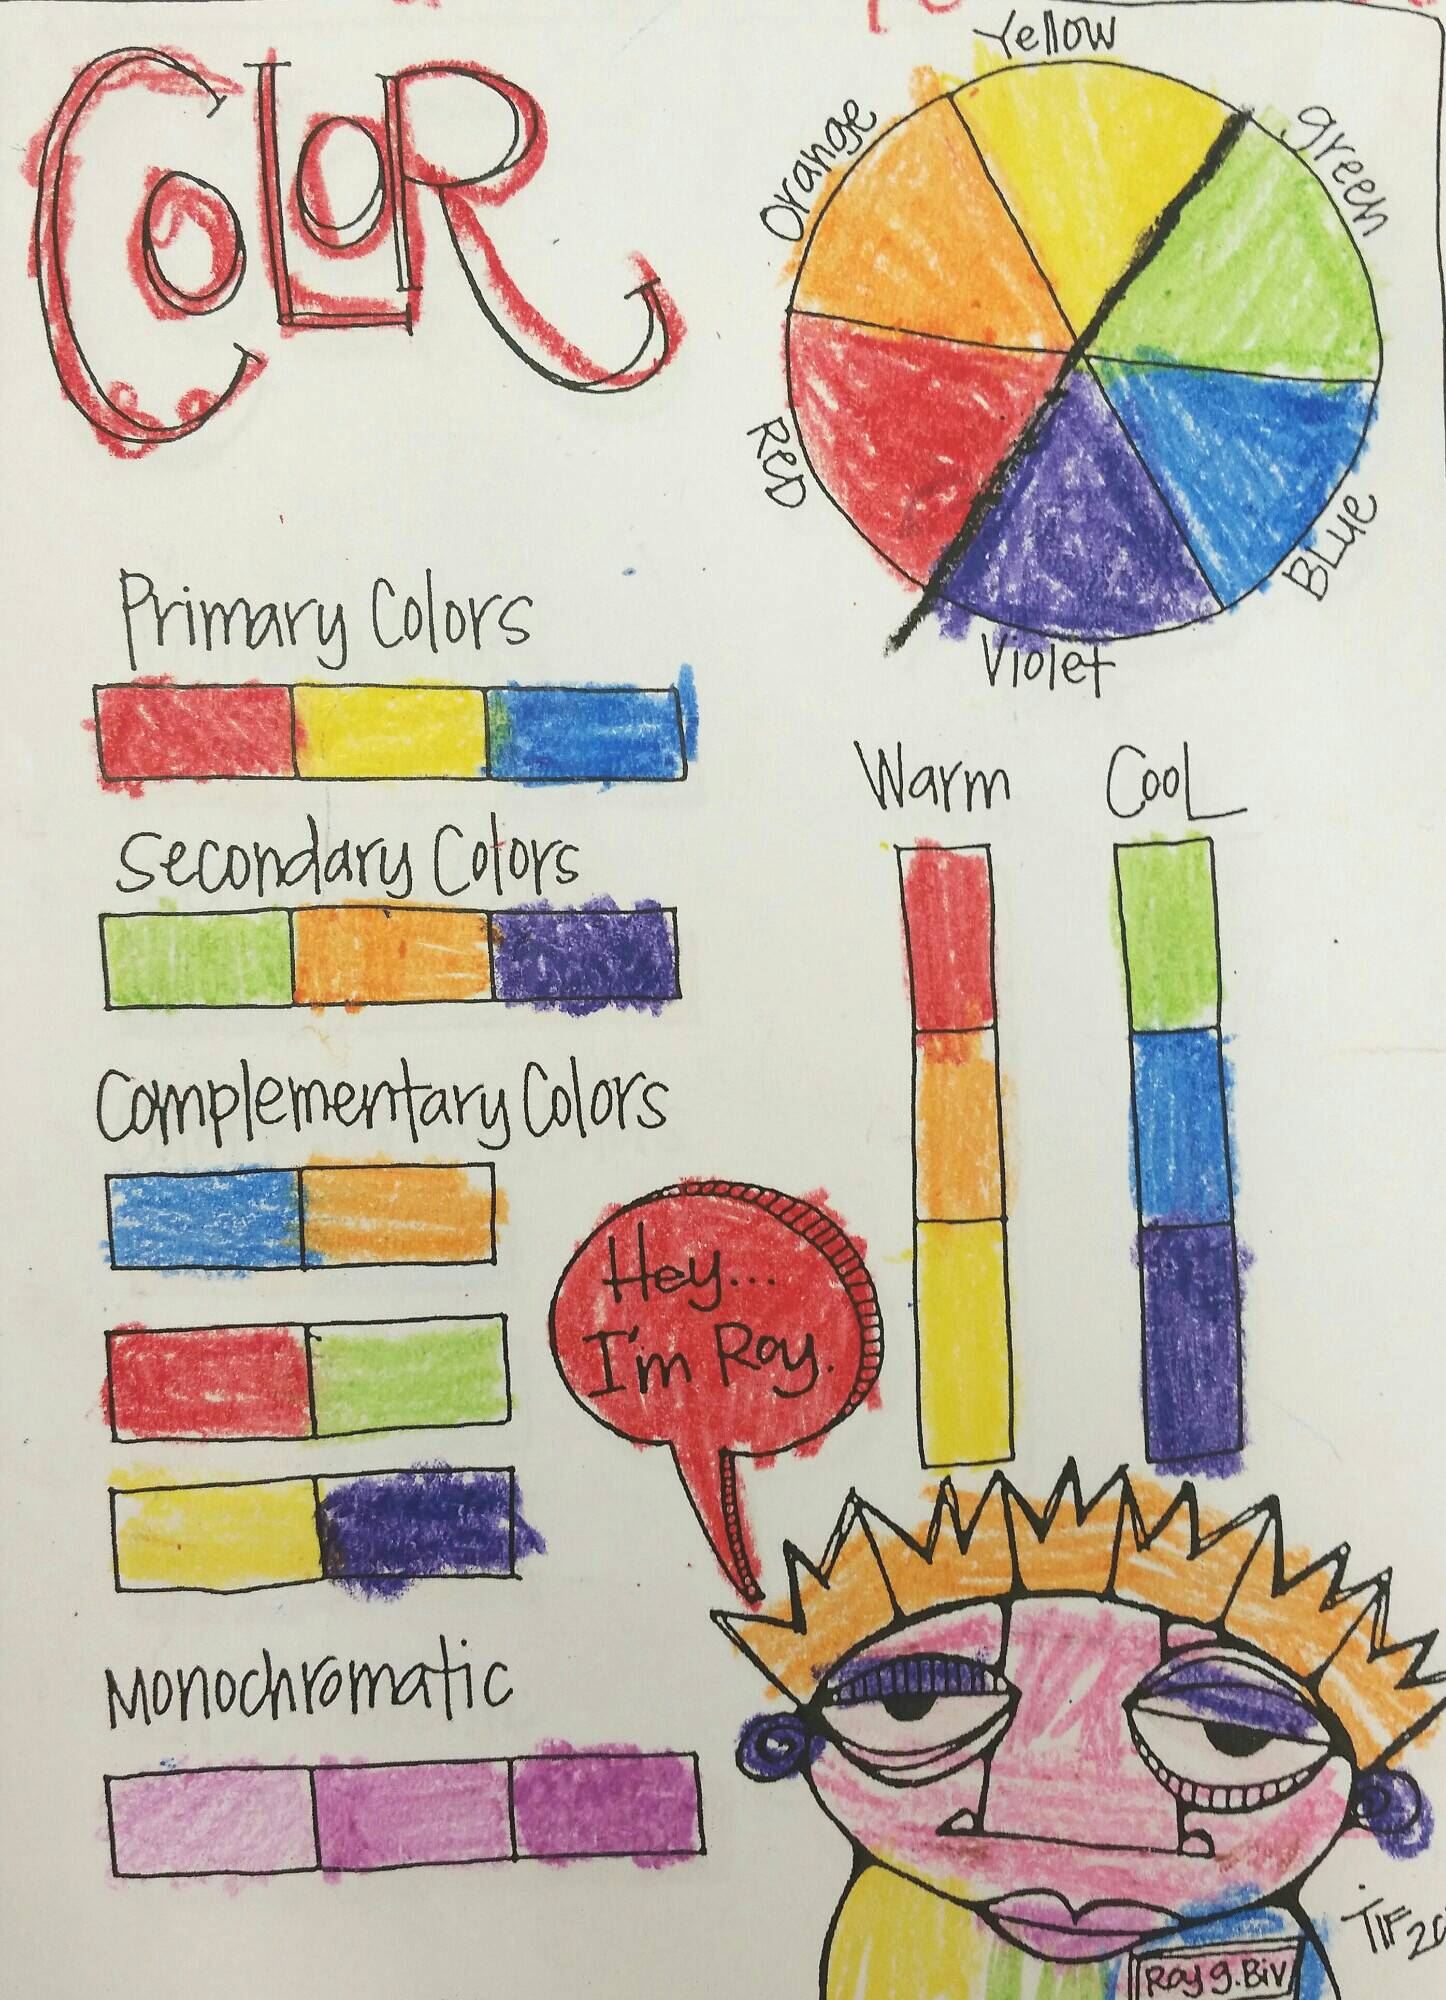 COLOR
Yellow
Orange
green
RED
BLue
Violet
Primary Colors
Warm
CooL
Secondary Colors
Complementary Colors
Hey...
I'm Roy.
Monochromatic
Roy g. Biv